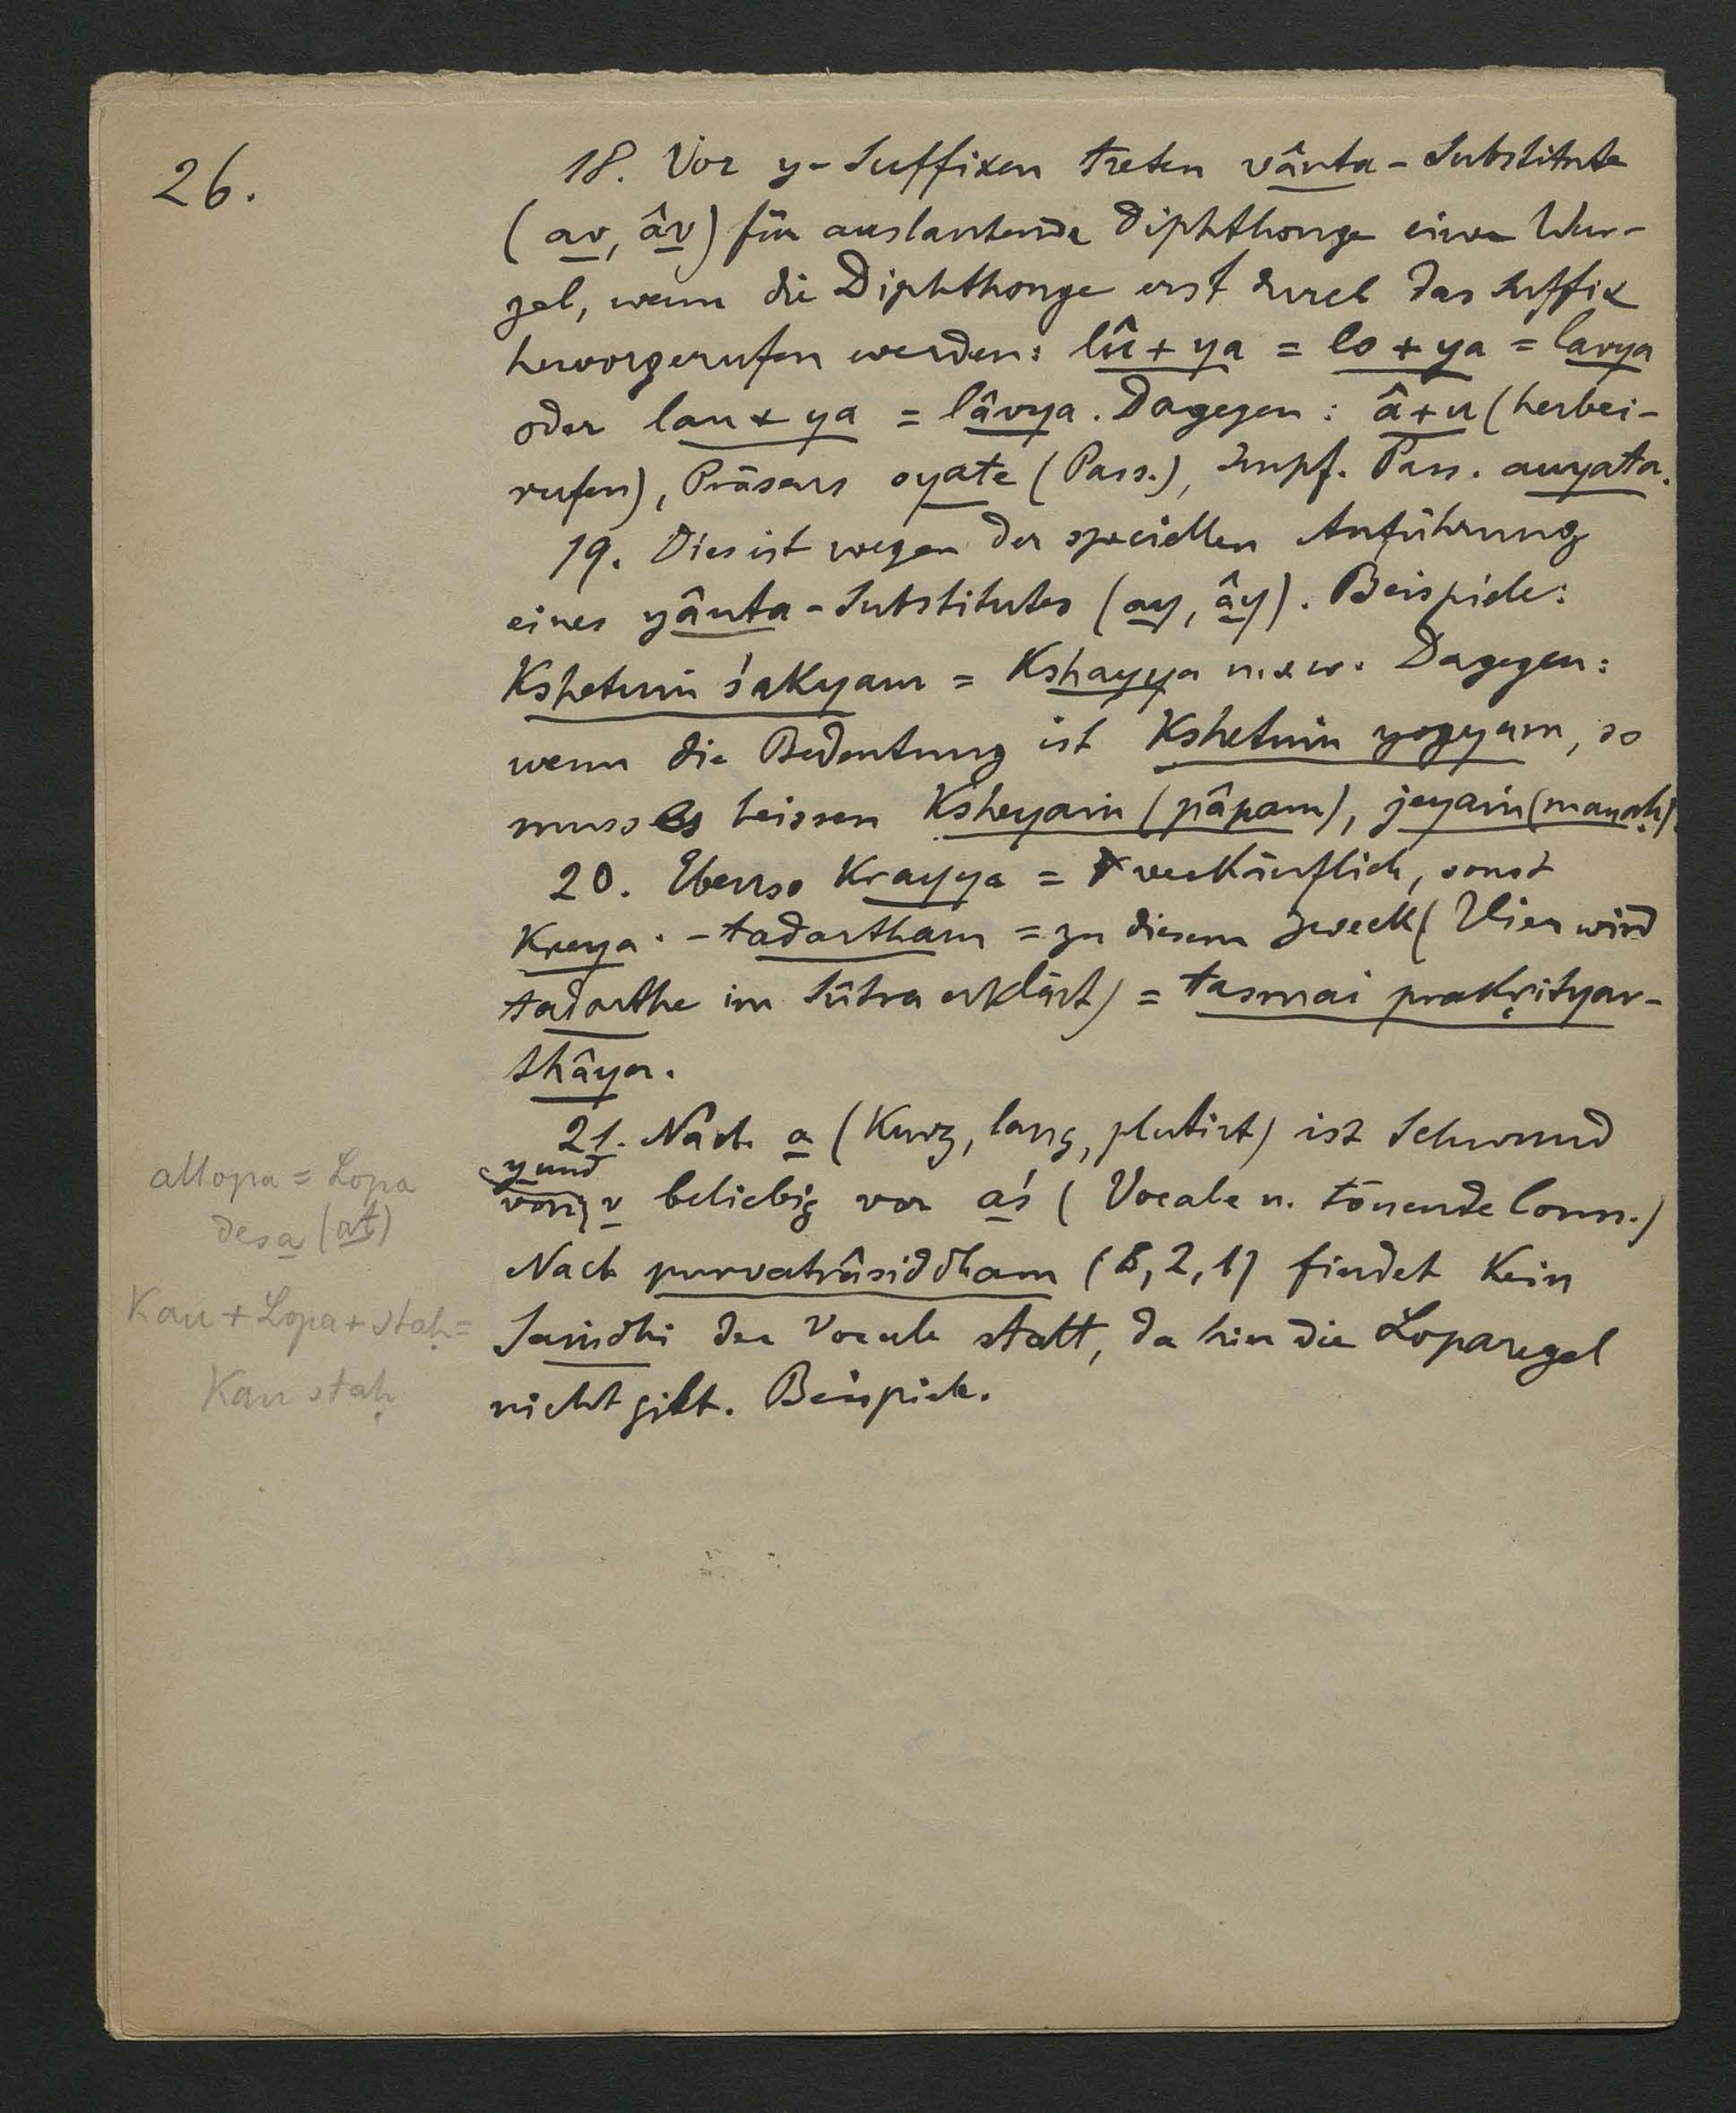 26.
18. Vor y-Suffixen treten vânta-Substitute
(av, âv) für auslautende Diphthonge einer Wur-
zel, wenn die Diphthonge erst durch das Suffix
hervorgerufen werden: lû + ya = lo + ya = lavya
oder lau + ya = lâvya. Dagegen: â + u (herbei-
rufen), Präsens oyate (Pass.), Impf. Pass. auyata.
19. Dies ist wegen der speciellen Anführung
eines yânta-Substitutes (ay, ây). Beispiele:
Kshetuṁ śakyam = Kshayya u.s.w. Dagegen:
wenn die Bedeutung ist Kshetuṁ yogyam, so
muss es heissen Ksheyaṁ (pâpam), jeyaṁ (manaḥ).
20. Ebenso Krayya = verkäuflich, sonst
Kreya. - tadartham = zu diesem Zweck (Hier wird
tadarthe im Sûtra erklärt) = tasmai prakṛityar-
thâya.
21. Nach a (Kurz, lang, plutirt) ist Schwund
y und
von v beliebig vor aś (Vocale u. tönende Conn.)
Nach purvatrâsiddham (8, 2, 1) findet Kein
Saṁdhi der Vocale statt, da hier die Loparegel
nicht gilt. Beispiele.
allopa = Lopa
des a (at)
Kau + Lopa + staḥ =
Kau staḥ